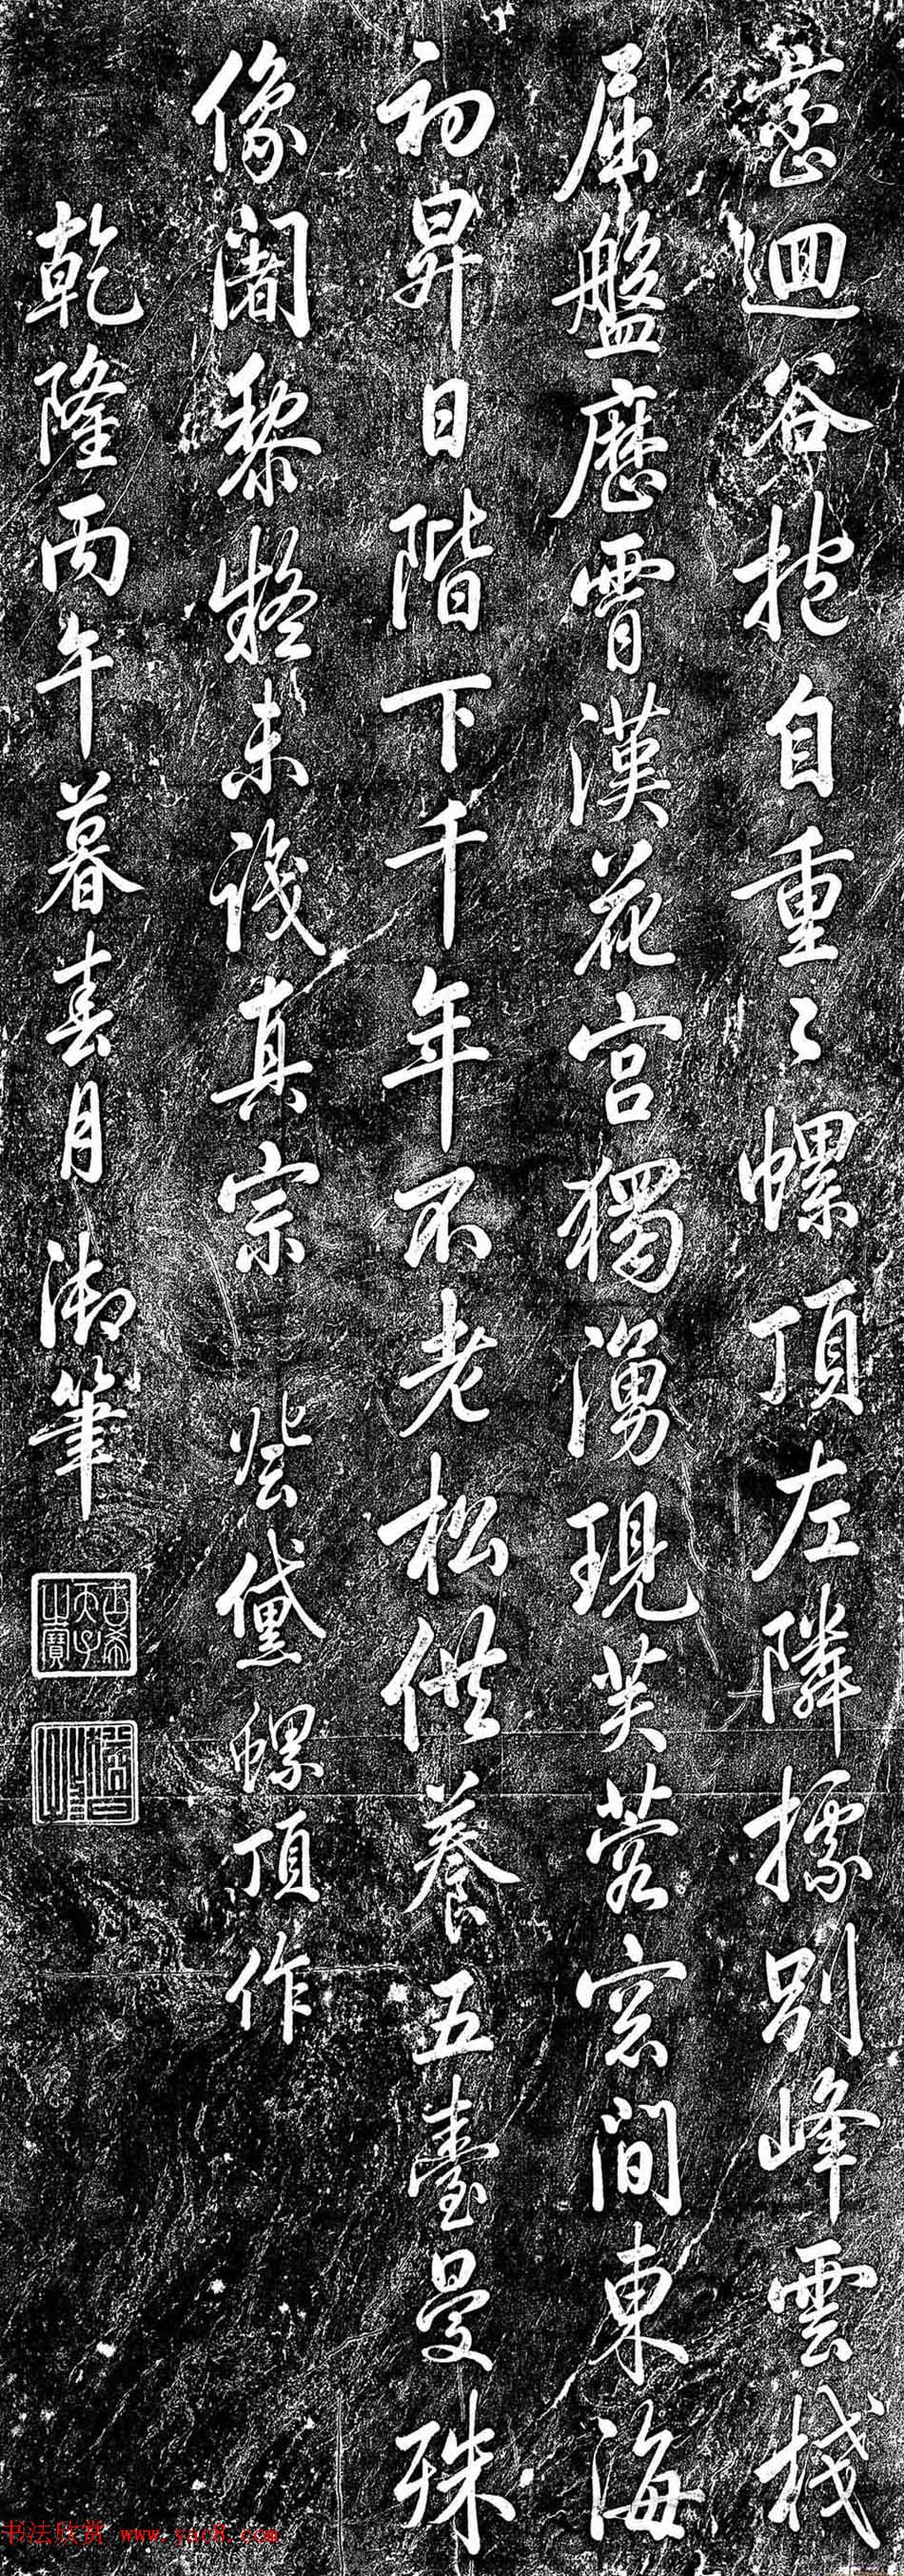 峦迴谷抱自重〻螺頂左隣據别峰雲棧
屈盤歷霄漢花宮獨湧現芙蓉窓間東海
初昇日階下千年不老松供養五臺曼殊
像闍黎疑未識真宗 登黛螺頂作
乾隆丙午暮春月御筆
古希天子之寶
書法欣赏 www.yac8.com